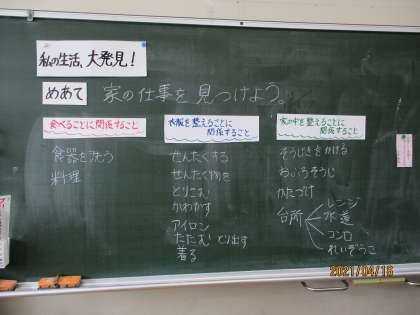 私の生活、大発見！
めあて 家の仕事を見つけよう。
食べることに関係すること
食器を洗う
料理
衣服を整えることに
関係すること
せんたくする
せんたく物を
とりこむ
かわかす
アイロン
たたむ とり出す
着る
家の中を整えることに
関係すること
そうじきをかける
おふろそうじ
かたづけ
台所
レンジ
水道
コンロ
れいぞうこ
2021/04/16